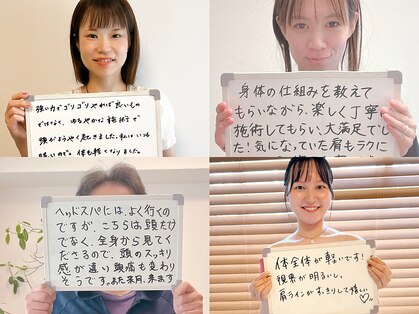 強い力でゴリゴリやれば良いもの
ではなく、ゆるやかな施術で
頭がようやく起きました。私はいつも
眠いので。体も軽くなりました。
身体の仕組みを教えて
もらいながら、楽しく丁寧
施術してもらい、大満足でし
た!気になっていた肩もラクに
ヘッドスパには、よく行くの
ですが、こちらは頭だけ
でなく、全身から見てく
ださるので、頭のスッキリ
感が違い頭痛も変わり
そうです。また来月、来ます
体全体が軽いです!
視界が明るいし、
肩ラインがすっきりして嬉しい♡